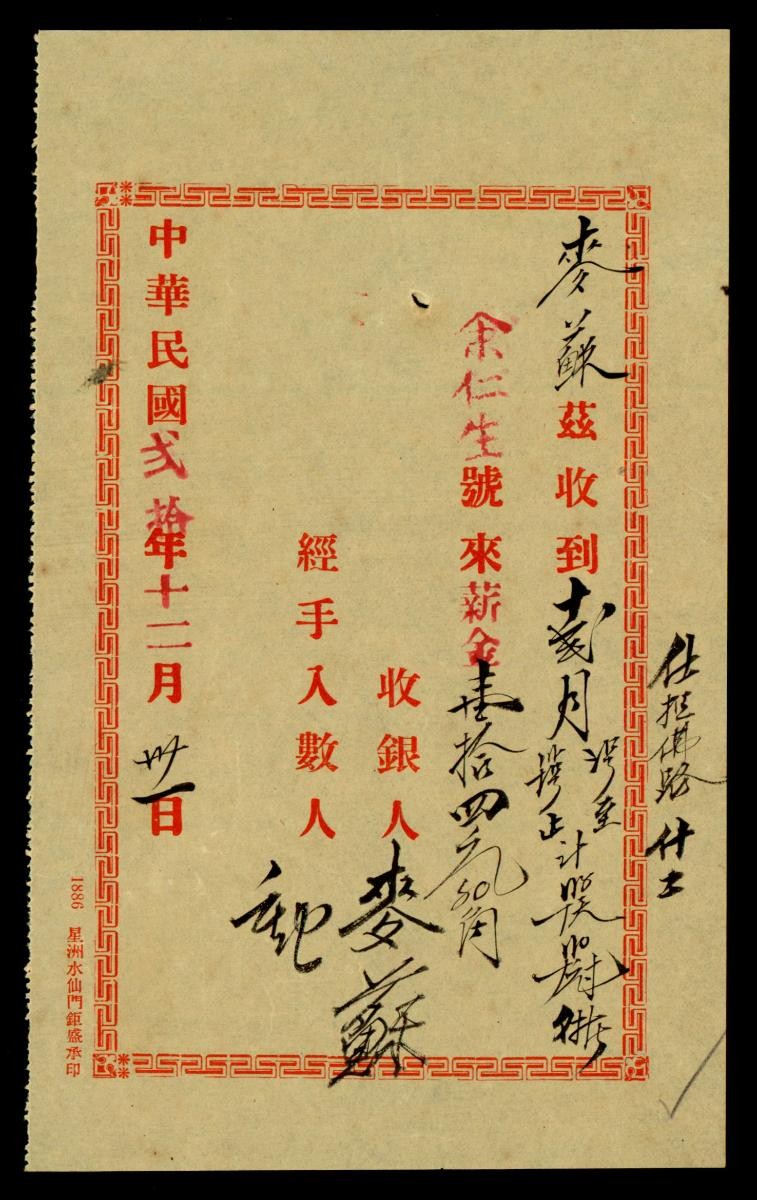 仕担佛路 什工
麥蘇茲收到十弍月
止計
余仁生號來薪金壹拾四元50角
收銀人麥蘇
經手入數人
中華民國弍拾年十二月卅一日
1886 星洲水仙門鉅盛承印